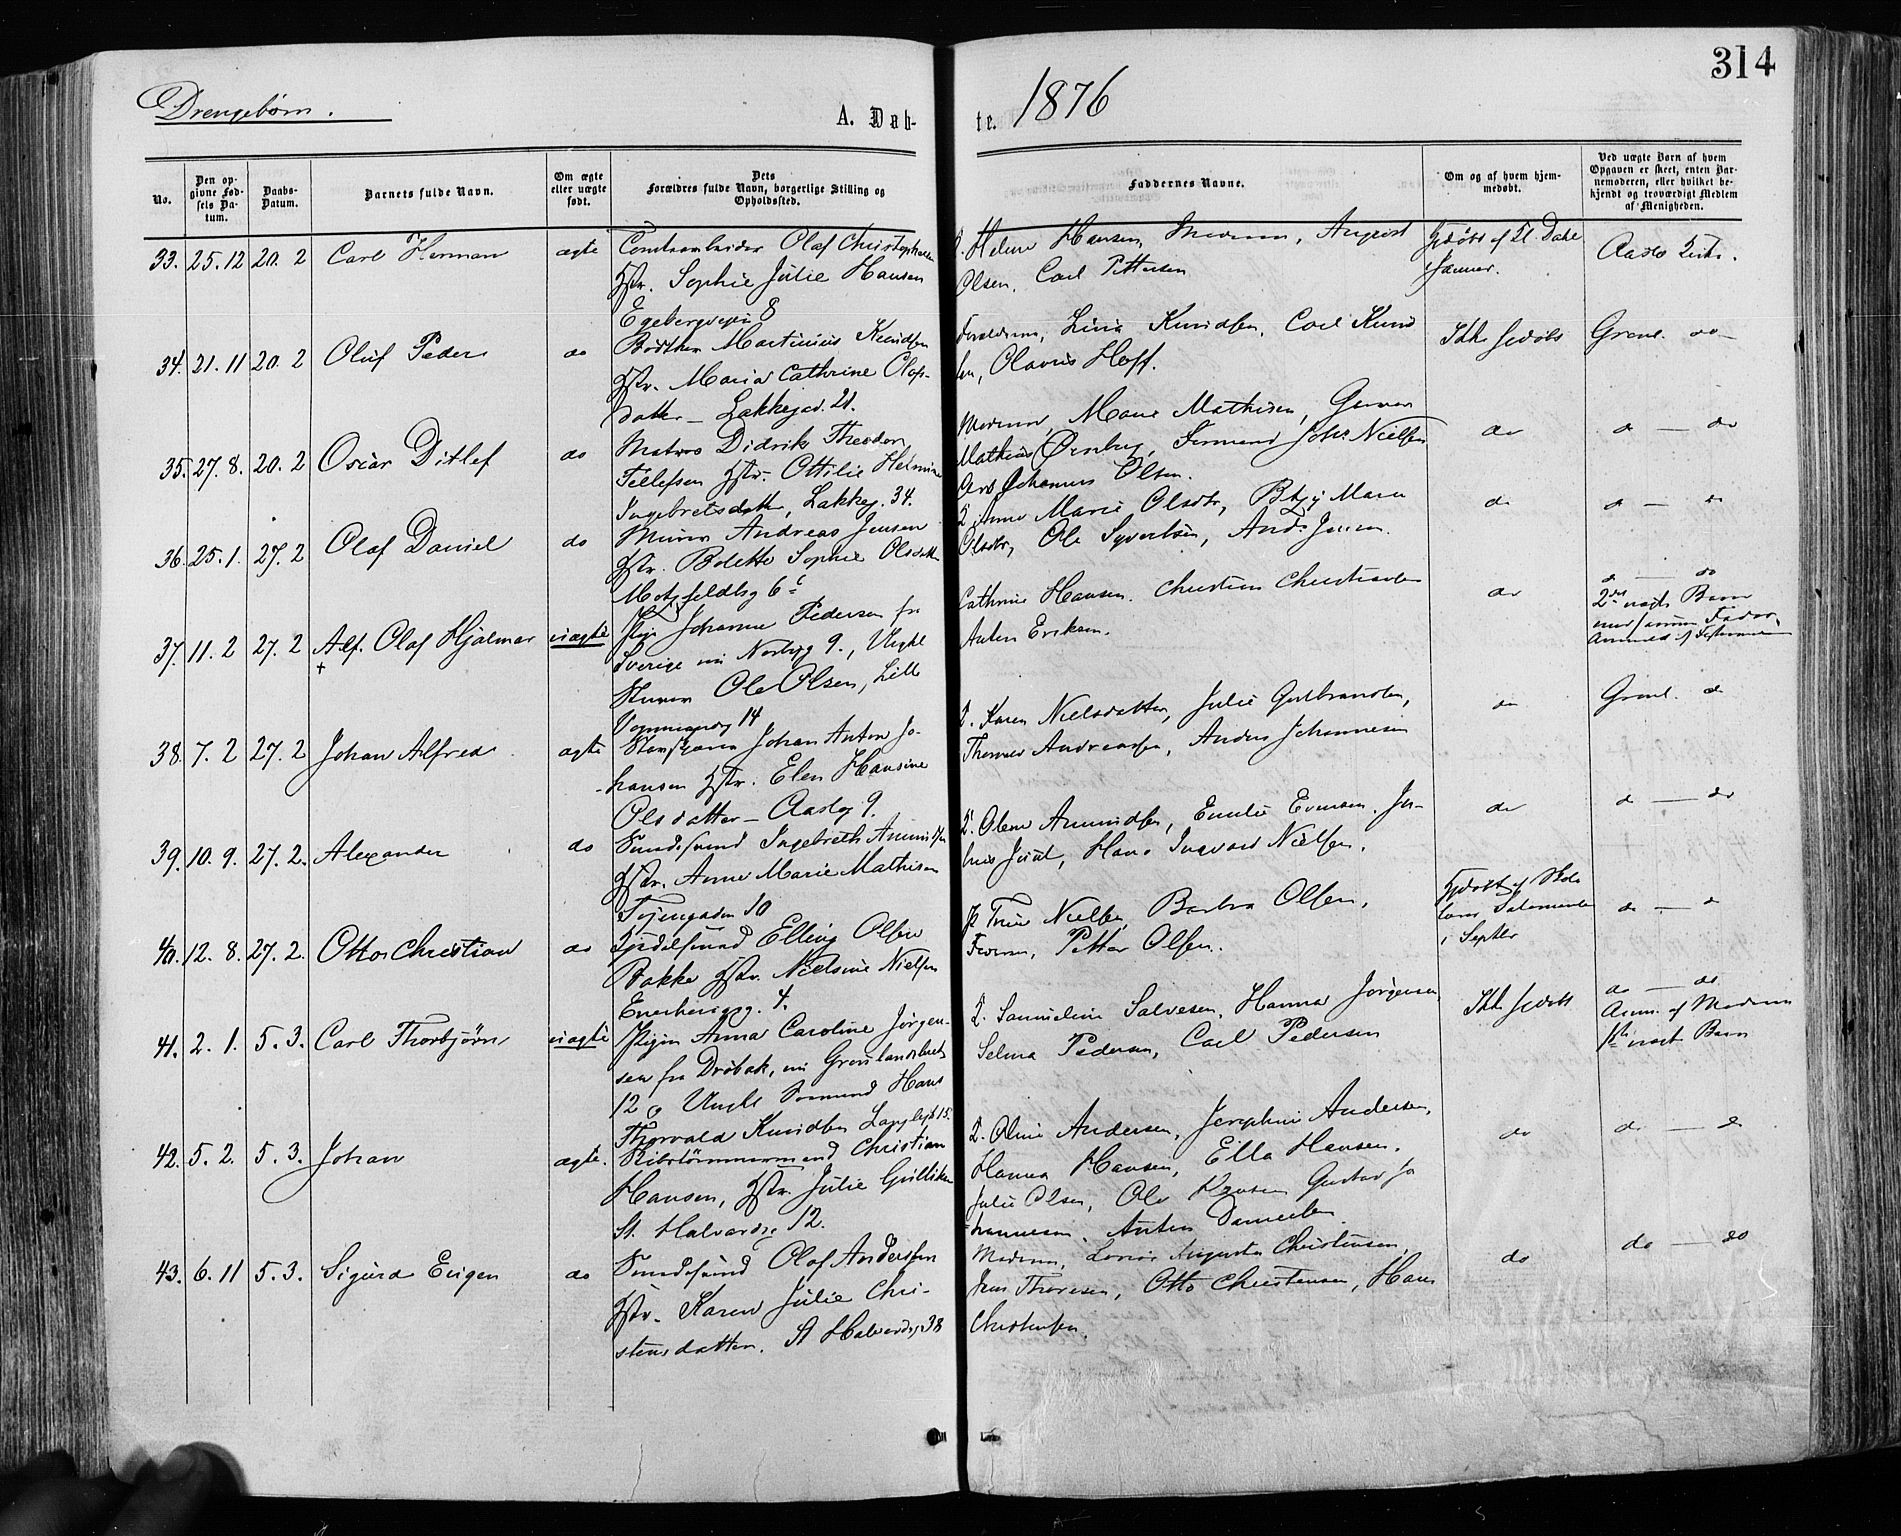 314
Drengebørn.
A. Døb-
te. 1876
No.
Den op-
givne Fød-
sels Da-
tum.
Daabs-
Datum.
Barnets fulde Navn.
Om ægte
eller uægte
født.
Dets
Forældres fulde Navn, borgerlige Stilling og
Opholdssted.
Faddernes Navne.
Om og af hvem hjem-
medøbt.
Ved uægte Børn af hvem
Opgaven er skeet, enten Bar-
nemoderen, eller hvilket be-
kjendt og troværdigt Medlem
af Menigheden.
33. 25. 12 20. 2 Carl Herman ægte
Olaf Christophersen
Hstr. Sophie Julie Hansen
Egebergveien 8
Helene Hansen, Moderen, August
Olsen, Carl Pettersen
Januar.
34. 21. 11 20. 2 Oluf Peder do
Bødker Martinius Knudsen
Hstr. Maria Cathrine Olafs-
datter — Lakkegad. 21.
Forældrene, Lina Knudsen, Carl Knud
sen, Olavus Hoff.
Ikke hjdøbt
Grønl. do
35. 27. 8. 20. 2 Oscar Ditlef do
Matros Didrik Theodor
Tellefsen Hstr. Ottilie Helmine
Ingebretsdatter, Lakkeg. 34.
Moderen, Marie Mathisen, Gunner
Mathias Ørnberg, Sømand Johs Nielsen
Johannes Olsen.
do
do — do
36. 25. 1. 27. 2 Olaf Daniel do
Murer Andreas Jensen
Hstr. Bolette Sophie Olsdatter
Motzfeldtsg 6c
J. Anne Marie Olsdtr, Maren
Olsdtr, Ole Syvertsen, Ands Jensen.
do
do — do
37. 11. 2 27. 2 Alf. Olaf Hjalmar uægte
†
Pige Johanne Pedersen fra
Sverige nu Norbyg 9., Ungkl
Murer Ole Olsen, Lille
Vognmandsg 14
Cathrine Hansen, Christian Christiansen
Anton Eriksen.
do
do — do
2det uægte Barn
med samme Fader.
38. 7. 2 27. 2 Johan Alfred ægte
Johan Anton Jo-
hansen Hstr. Elen Hansine
Olsdatter — Aasbg 9.
J. Karen Nielsdatter, Julie Gulbrandsen,
Thorvald Andreassen, Anders Johannesen
do
Grønl. do
39. 10. 9. 27. 2. Alexander do
Sundsmand Ingebreth Amundsen
Hstr. Anne Marie Mathisen
Tøjengaden 10
J. Olene Amundsen, Emilie Evensen, Jo-
hns Juul, Hans Ingvard Nielsen.
do
do — do
40. 12. 8. 27. 2. Otto Christian do
Elling Olsen
Bakke Hstr. Nielsine Nielsen
Enerhaugg. 4.
P. Trine Nielsen, Barbra Olsen,
Faderen, Petter Olsen.
Hjdøbt af
i Septbr
do — do
41. 2. 1. 5. 3. Carl Thorbjørn uægte
Pigen Anna Caroline Jørgen-
sen fra Drøbak, nu Grønlandsleret
12 og Ungkl Sømand Hans
Thorvald Knudsen Langleik 15
J. Samueline Salvesen, Hanna Jørgensen
Selma Pedersen, Carl Pedersen
Ikke hjdøbt
do — do
Anm. af Moderen
1ste uægt Barn
42. 5. 2. 5. 3. Johan ægte.
Ribstømmermand Christian
Hansen, Hstr. Julie Gulliksen
St. Halvardsg 12.
J. Oline Andersen, Josephine Andersen,
Hanna Hansen, Ella Hansen,
Julie Olsen, Ole Knutsen Gustav Jo
hannesen, Anton Danielsen
do
do — do
43. 6. 11 5. 3. Sigurd Eugen do
Sundsmand Olaf Andersen
Hstr. Karen Julie Chri-
stensdatter. St Halvardsg 38
Moderen, Lovise Augusta Christensen,
Jens Thoresen, Otto Christensen, Hans
Christensen.
do
do — do